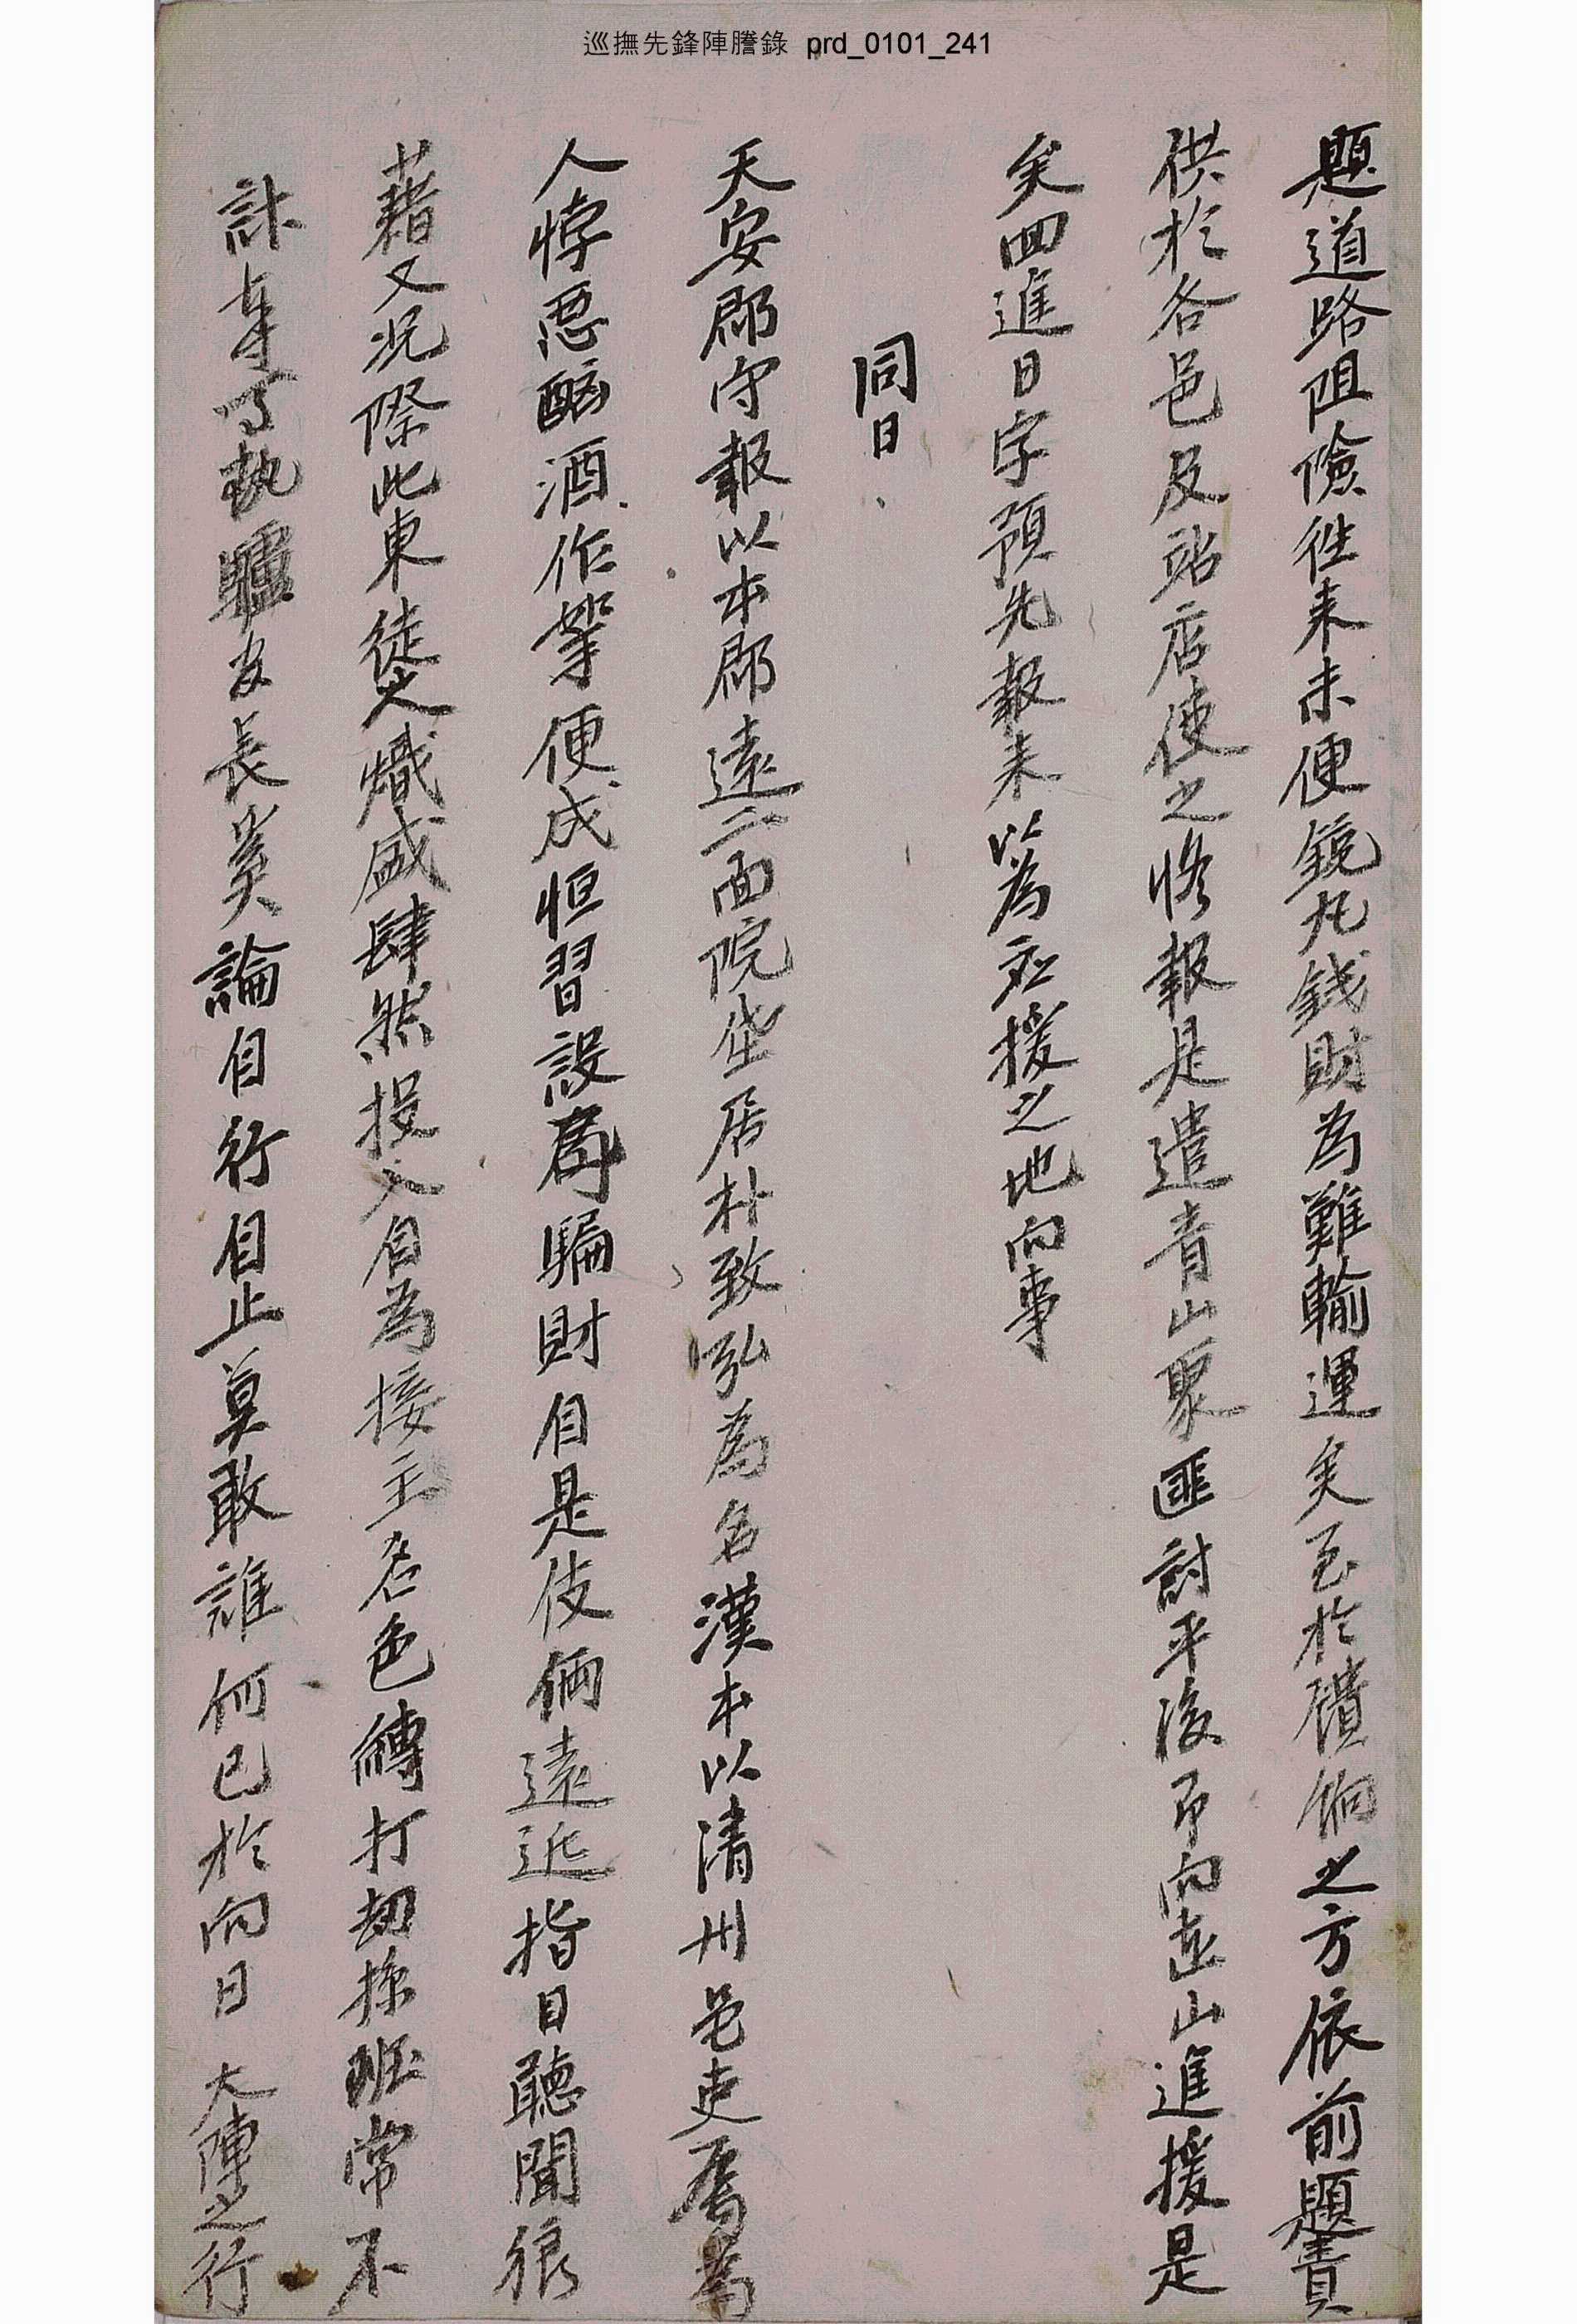 巡撫先鋒陣謄錄 prd_0101_241
題道路阻險往來未便鉛丸錢財為難輸運矣至於犒餉之方依前題責
供於各邑及站店使之修報是遣青山聚匪討平後即向立山進援是
矣四進日字預先報來以為应援之地向事
同日
天安郡守報以本郡遠二面院垈居朴致弘為名漢本以淸州邑吏為
人悖惡酗酒作挐便成恒習設局騙財自是伎倆遠近指目聽聞狼
藉又況際此東徒之熾盛肆然投入自為接主名色縛打刼掠班常不
計奪執驅為長奚論自行自止莫敢誰何已於向日 大陣之行